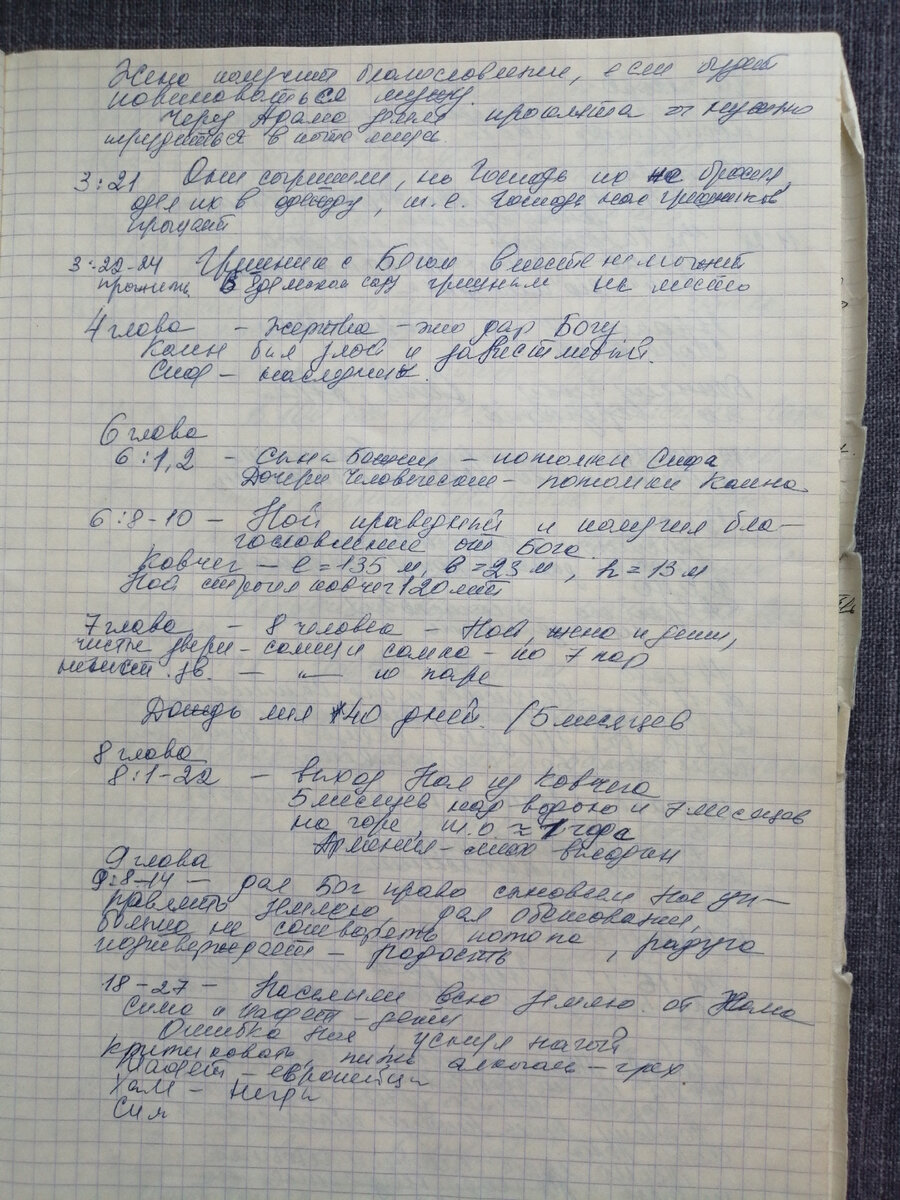 Жена получит благословение, если будет
повиноваться мужу.
Через Адама земля проклята и нужно
трудиться в поте лица.
3:21 Они согрешили, но Господь их не бросил,
одел их в одежду, т.е. Господь нас грешников
прощает
3:22-24 Грешник с Богом вместе не может
прожить. В Эдемском саду грешным не место
4 глава - жертва - это дар Богу
Каин был злой и завистливый.
Сиф - наследник.
6 глава
6:1,2 - Сыны Божии - потомки Сифа
Дочери человеческие - потомки Каина
6:8-10 - Ной праведный и получил бла-
гословление от Бога.
Ковчег - l = 135 м, в = 23 м, h = 13 м
Ной строил ковчег 120 лет
7 глава - 8 человек - Ной, жена и дети,
чисты звери - самец и самка - по 7 пар
нечист. зв. - -"- по паре
Дождь лил 40 дней. / 5 месяцев
8 глава
8:1-22 - выход Ноя из Ковчега
5 месяцев над водою и 7 месяцев
на горе, т.о. ≈ 1 года
Армения - высадки
9 глава
9:8-14 - дал Бог право сыновьям Ноя уп-
равлять землею, дал обетование,
больше не сотворять потопа, радуга
подтверждает - радость
18-27 - Населили всю землю от Хама
Сима и Иафет - дети
Ошибка Ноя, уснул нагой
критиковать, пить алкоголь - грех.
Иафет - европейцы
Хам - негры
Сим